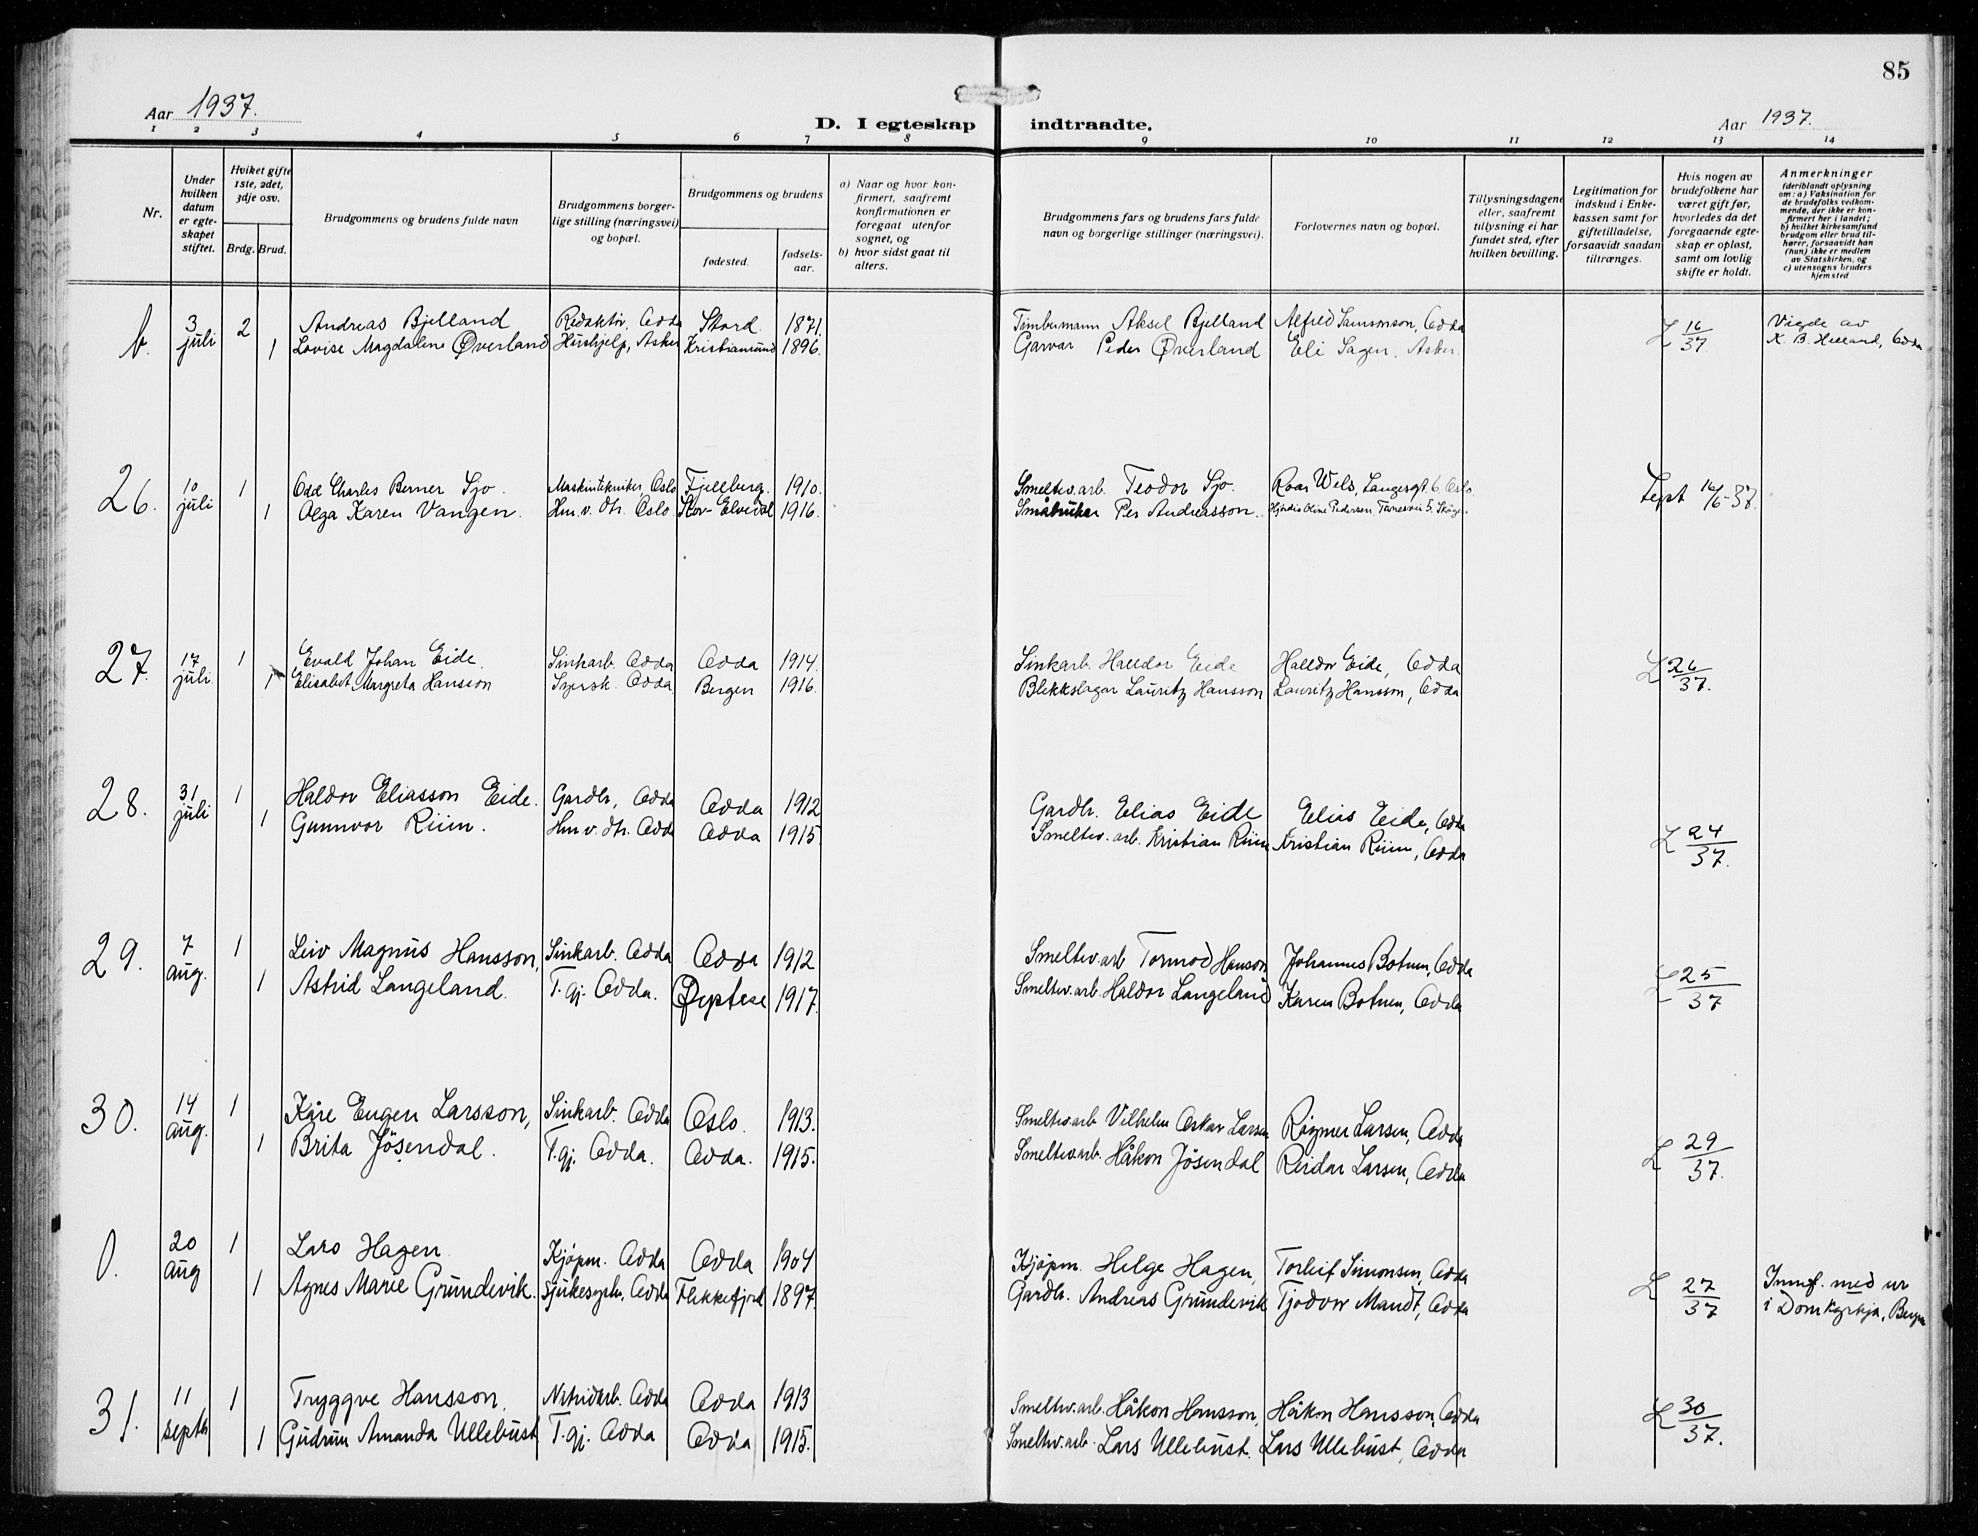 85
Aar 1937.
D. I egteskap indtraadte.
Aar 1937.
1 2 3 4 5 6 7 8 9 10 11 12 13 14
Nr.
Under hvilken datum er egteskapet stiftet.
Hviket gifte 1ste, 2det, 3dje osv.
Brdg. Brud.
Brudgommens og brudens fulde navn
Brudgommens borgerlige stilling (næringsvei) og bopæl.
Brudgommens og brudens
fødested.
fødselsaar.
a) Naar og hvor konfirmert, saafremt konfirmationen er foregaat utenfor sognet, og
b) hvor sidst gaat til alters.
Brudgommens fars og brudens fars fulde navn og borgerlige stillinger (næringsvei).
Forlovernes navn og bopæl.
Tillysningsdagene eller, saafremt tillysning ei har fundet sted, efter hvilken bevilling.
Legitimation for indskud i Enkekassen samt for giftetilladelse, forsaavidt saadan tiltrænges.
Hvis nogen av brudefolkene har været gift før, hvorledes da det foregaaende egteskap er opløst, samt om lovlig skifte er holdt.
Anmerkninger
(deriblandt oplysning om: a) Vaksination for de brudefolks vedkommende, der ikke er konfirmert her i landet; b) hvilket kirkesamfund brudgom eller brud tilhører, forsaavidt han (hun) ikke er medlem av Statskirken, og c) utensogns bruders hjemsted
b. 3 juli 2 Andreas Bjelland Redaktör, Odda Stord 1871. Timbermann Aksel Bjelland Alfred Samsonson, Odda L 16/37 Vigde av
1 Lovise Magdalene Øverland Hushjelp, Asker Kristiansund 1896. Garvar Peder Øverland Eli Sagen, Asker. K. B. Helland, Odda
26. 10 juli 1 Odd Charles Berner Sjo. Maskintekniker, Oslo Fjelberg. 1910. Smeltev. arb. Teodor Sjo. Roar Wels, Langesgt. 6, Oslo. 16/6-37.
1 Olga Karen Vangen. Hm. v. dtr. Oslo Stor-Elvedal 1916. Småbruker Per Andreasson. Hjördis Oline Pedersen,
27. 17 juli 1 Evald Johan Eide. Sinkarb. Odda Odda 1914. Sinkarb. Halldor Eide Halldor Eide, Odda L 26/37.
1 Elisabet Margreta Hansson Syersk. Odda Bergen 1916. Blikkslagar Lauritz Hansson Lauritz Hansson, Odda
28. 31 juli 1 Haldor Eliasson Eide. Gardbr, Odda Odda 1912 Gardbr. Elias Eide Elias Eide, Odda L 24/37.
1 Gunnvor Riim. Hm v. dtr. Odda Odda 1915. Smeltev. arb. Kristian Riim Kristian Riim, Odda
29. 7 aug. 1 Leiv Magnus Hansson, Sinkarb. Odda Odda 1912 Smeltev. arb Tormod Hanson Johannes Botnen, Odda L 25/37
1 Astrid Langeland. T. gj. Odda. Øystese 1917. Smeltev. arb. Haldor Langeland Karen Botnen, Odda
30. 14 aug. 1 Kåre Eugen Larsson, Sinkarb. Odda Oslo. 1913. Smeltev. arb Vilhelm Oskar Larsen Ragmer Larsen, Odda L 29/37.
1 Brita Jösendal. T. gj. Odda. Odda. 1915. Smeltev. arb. Håkon Jösendal Reidar Larsen, Odda
0. 20 aug 1 Lars Hagen Kjöpm. Odda Odda 1904 Kjöpm. Helge Hagen, Torleif Simonsen, Odda L 27/37 Innf. med nr
1 Agnes Marie Grundevik. Sjukesyster, Odda Flekkefjord 1897. Gardbr. Andreas Grundevik Tjodvor Mandt, Odda i Domkyrkja, Bergen
31. 11 septbr 1 Tryggve Hansson. Nitridarb. Odda Odda 1913 Smeltev. arb. Håkon Hansson, Håkon Hansson, Odda L 30/37.
1 Gudrun Amanda Ullebust T. gj. Odda Odda 1915. Smeltev. arb. Lars Ullebust. Lars Ullebust, Odda